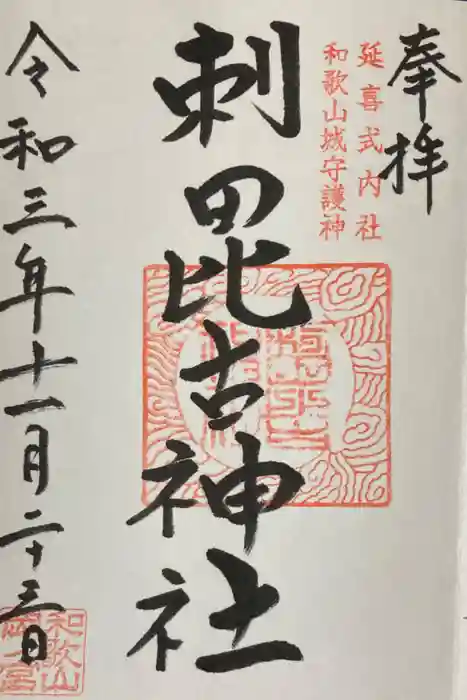 奉拝
延喜式内社
和歌山城守護神
刺田毘古神社
令和三年十一月二十三日
和歌山
岡の宮